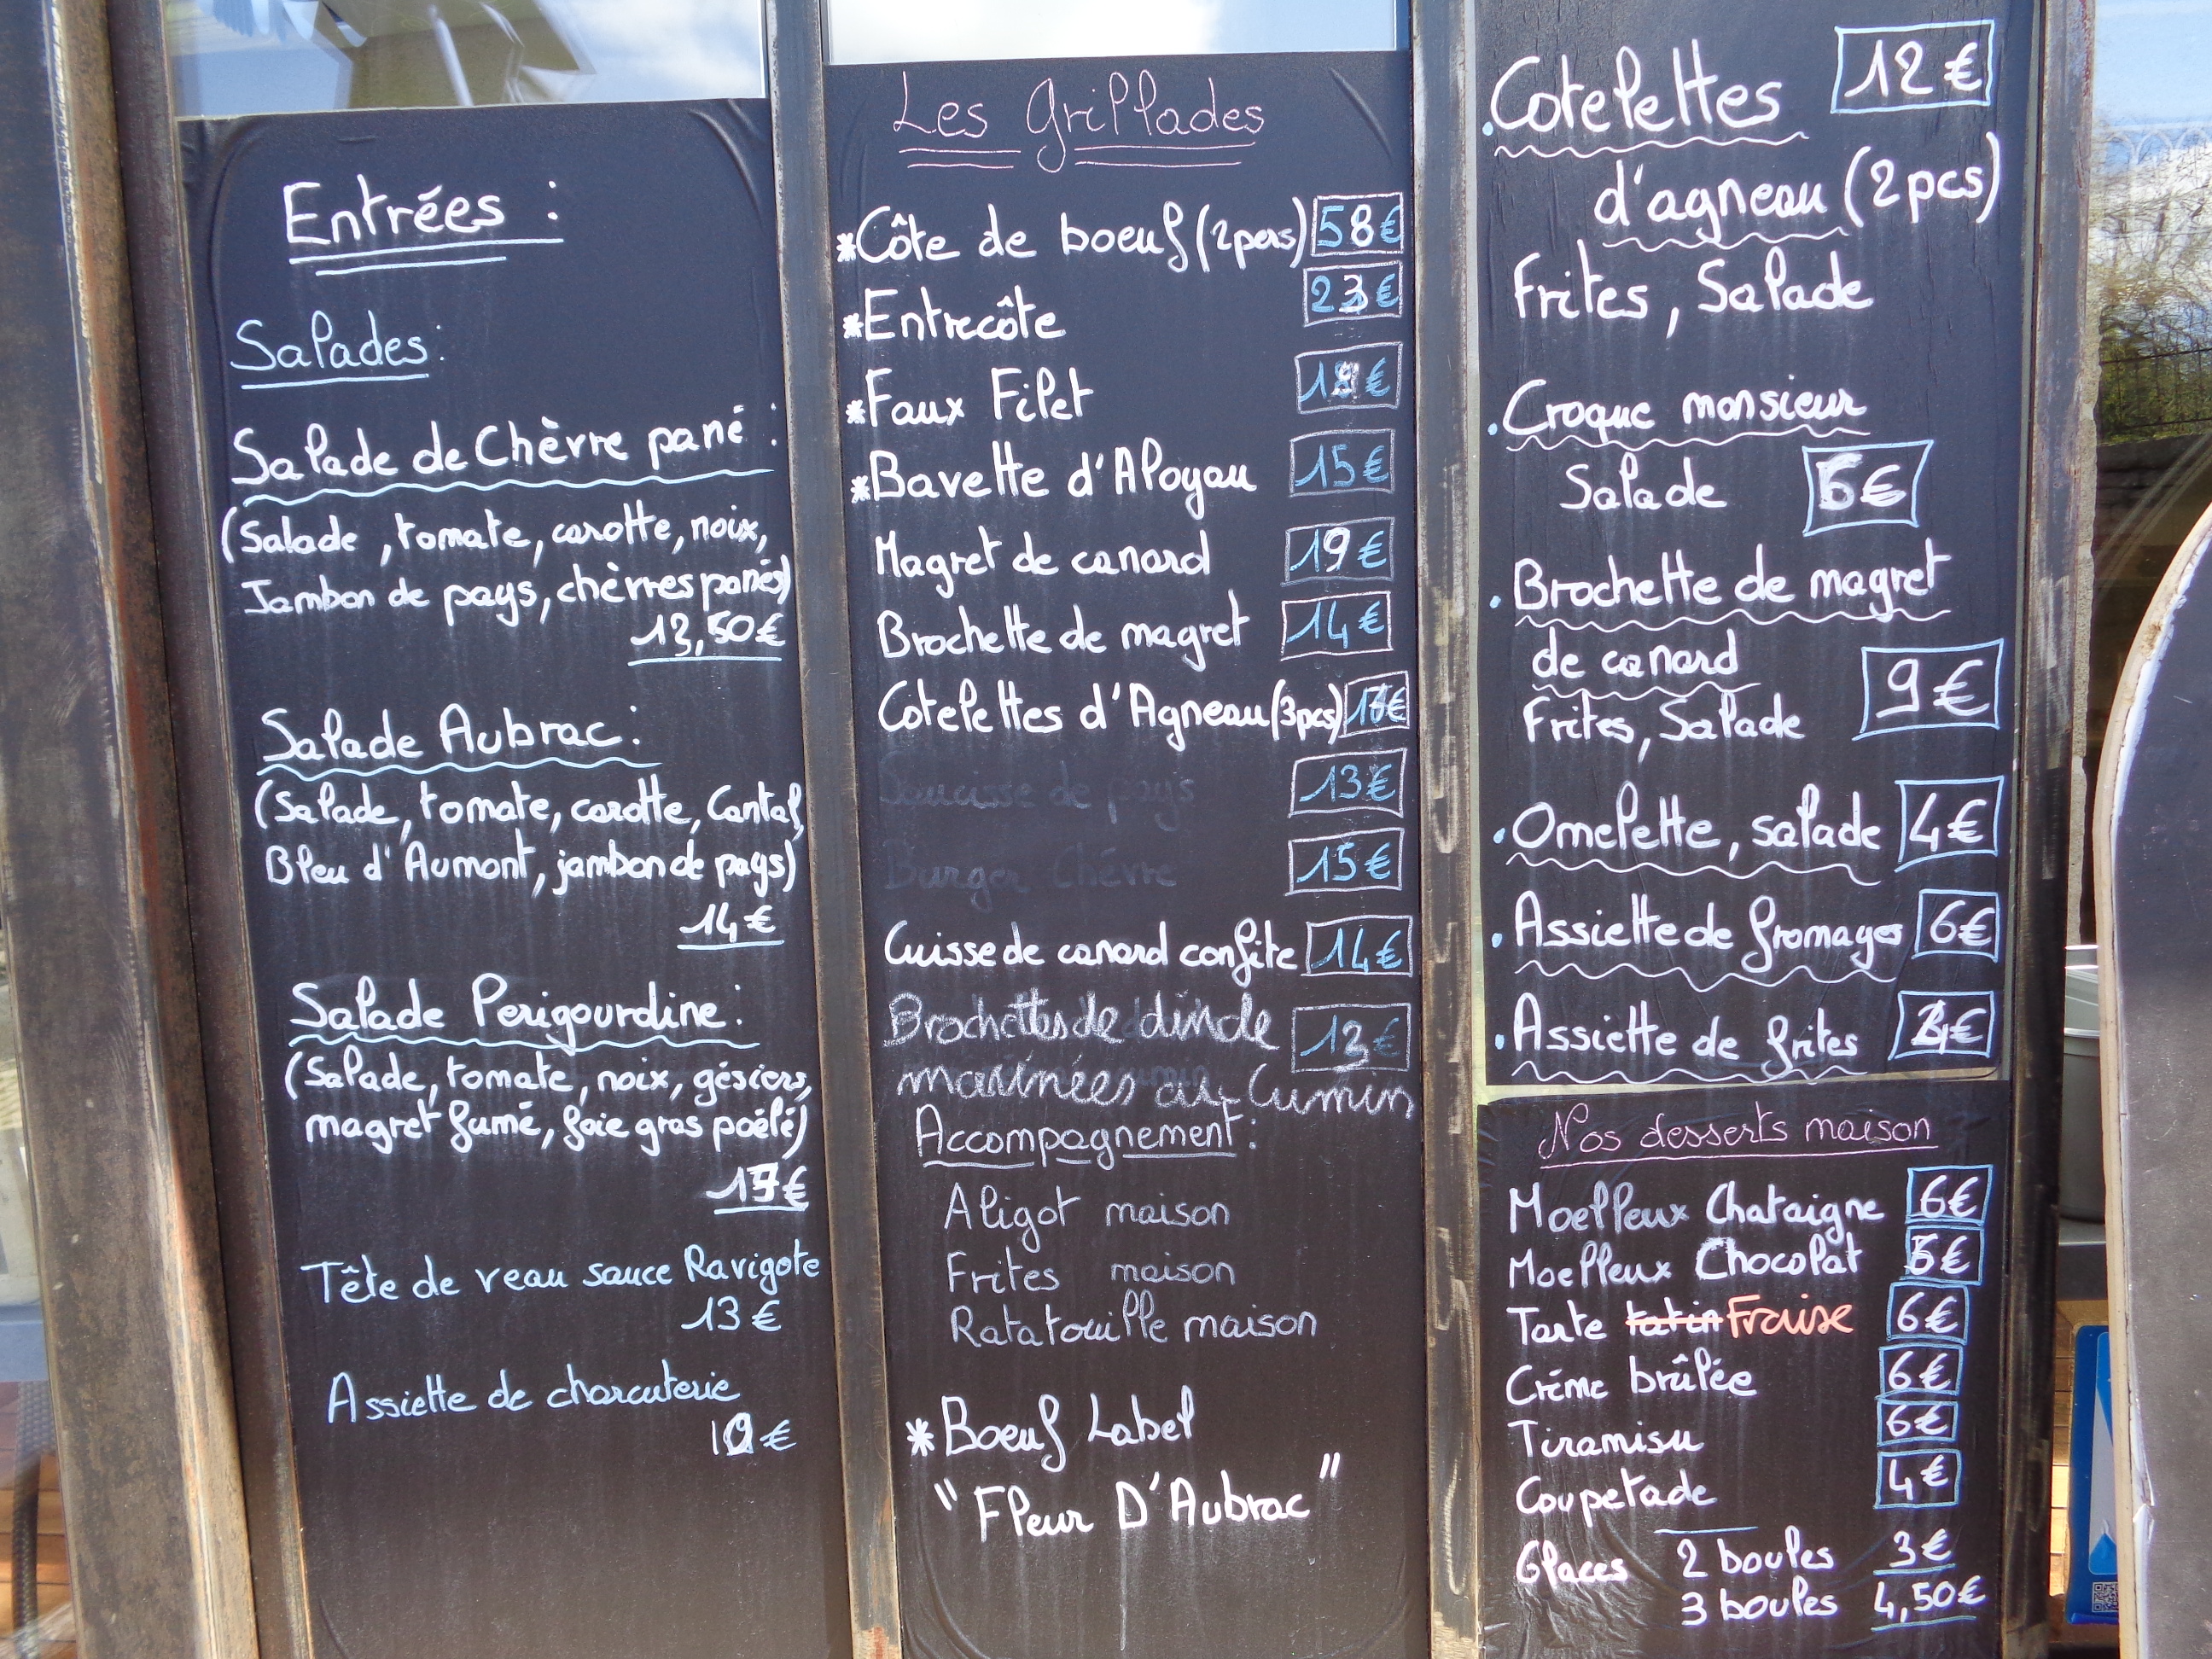 Entrées :
Salades :
Salade de Chèvre pané :
(Salade, tomate, carotte, noix,
Jambon de pays, chèvres panés)
13,50€
Salade Aubrac :
(Salade, tomate, carotte, Cantal,
Bleu d'Aumont, jambon de pays)
14€
Salade Perigourdine :
(Salade, tomate, noix, gésiers,
magret fumé, foie gras poêlé)
17€
Tête de veau sauce Ravigote
13€
Assiette de charcuterie
10€
Les Grillades
*Côte de boeuf (2pers) 58€
*Entrecôte 23€
*Faux Filet
*Bavette d'Aloyau 15€
Magret de canard 19€
Brochette de magret 14€
Cotelettes d'Agneau (3pcs)
Saucisse de pays 13€
Burger Chèvre 15€
Cuisse de canard confite 14€
Brochettes de dinde 13€
marinées au Cumin
Accompagnement :
Aligot maison
Frites maison
Ratatouille maison
*Boeuf Label
"Fleur D'Aubrac"
.Cotelettes 12€
d'agneau (2pcs)
Frites, Salade
.Croque monsieur
Salade 6€
.Brochette de magret
de canard 9€
Frites, Salade
.Omelette, salade 4€
.Assiette de fromages 6€
.Assiette de frites
Nos desserts maison
Moelleux Chataigne 6€
Moelleux Chocolat
Tarte tatin Fraise 6€
Crème brûlée 6€
Tiramisu 6€
Coupetade 4€
Glaces 2 boules 3€
3 boules 4,50€